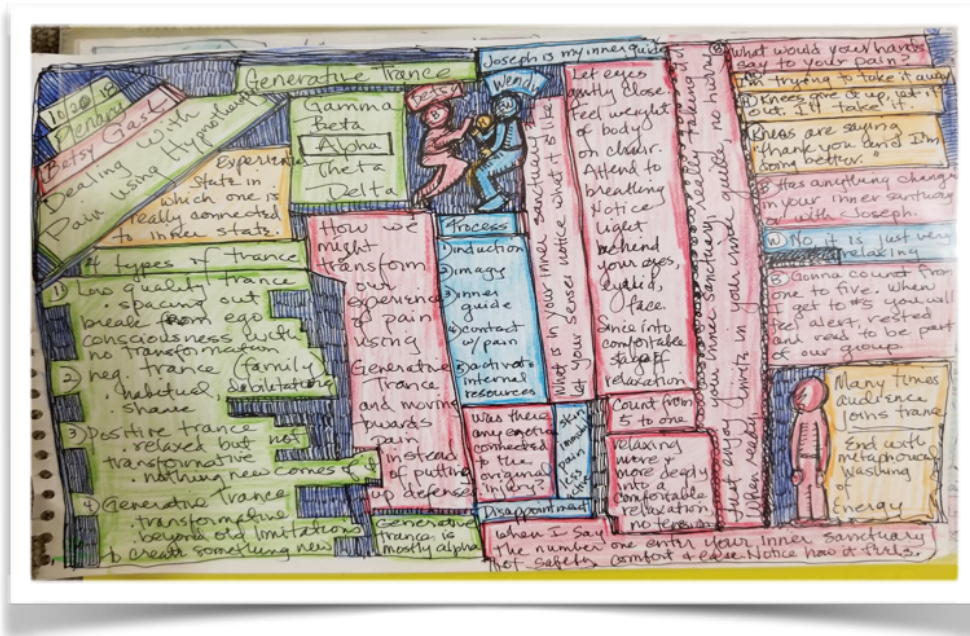 10/20 18
Plenary
Betsy Gast
Dealing with
Pain using
Hypnotherapy
Generative Trance
Experiential
State in
which one is
really connected
to inner state.
Gamma
Beta
Alpha
Theta
Delta
4 types of trance
1) Low quality trance
. spacing out
break from ego
consciousness with
no transformation
2) neg. trance (family)
. habitual, debilitating
shame
3) Positive trance
. relaxed but not
transformative
. nothing new comes of it
4) Generative trance
. transformative
beyond old limitations
to create something new
How we
might
transform
our
experience
of pain
using
Generative
Trance
and moving
towards
pain
instead
of putting
up defenses
Generative
trance is
mostly alpha
Joseph is my inner guide
Betsy
Wendy
B
W
Process
1) induction
2) imagry
3) inner
guide
4) contact
w/ pain
5) activate
internal
resources
Was there
any emotion
connected
to the
original
injury?
pain
less
Disappointment
What is in your inner sanctuary?
Let your senses notice what it is like
Let eyes
gently close.
Feel weight
of body
on chair.
Attend to
breathing
Notice
light
behend
your eyes,
eyelid,
face.
Since into
comfortable
stage of
relaxation
Count from
5 to one
relaxing
more &
more deeply
into a
comfortable
relaxation,
no tension
When I say
the number one enter your inner sanctuary
of safety, comfort & ease. Notice how it feels.
your inner sanctuary, really taking in
that enjoy
When ready, invite in your inner guide, no hurry
B) What would your hands
say to your pain?
W) trying to take it away
Knees give it up, let it
out. I'll take it.
Knees are saying
"thank you and I'm
doing better."
B) Has anything change
in your inner santuary
or with Joseph.
W) No, it is just very
relaxing
B) Gonna count from
one to five. When
I get to #5 you will
feel alert, rested
and read to be part
of our group.
Many times
audience
joins trance
End with
metaphorical
washing
of
energy